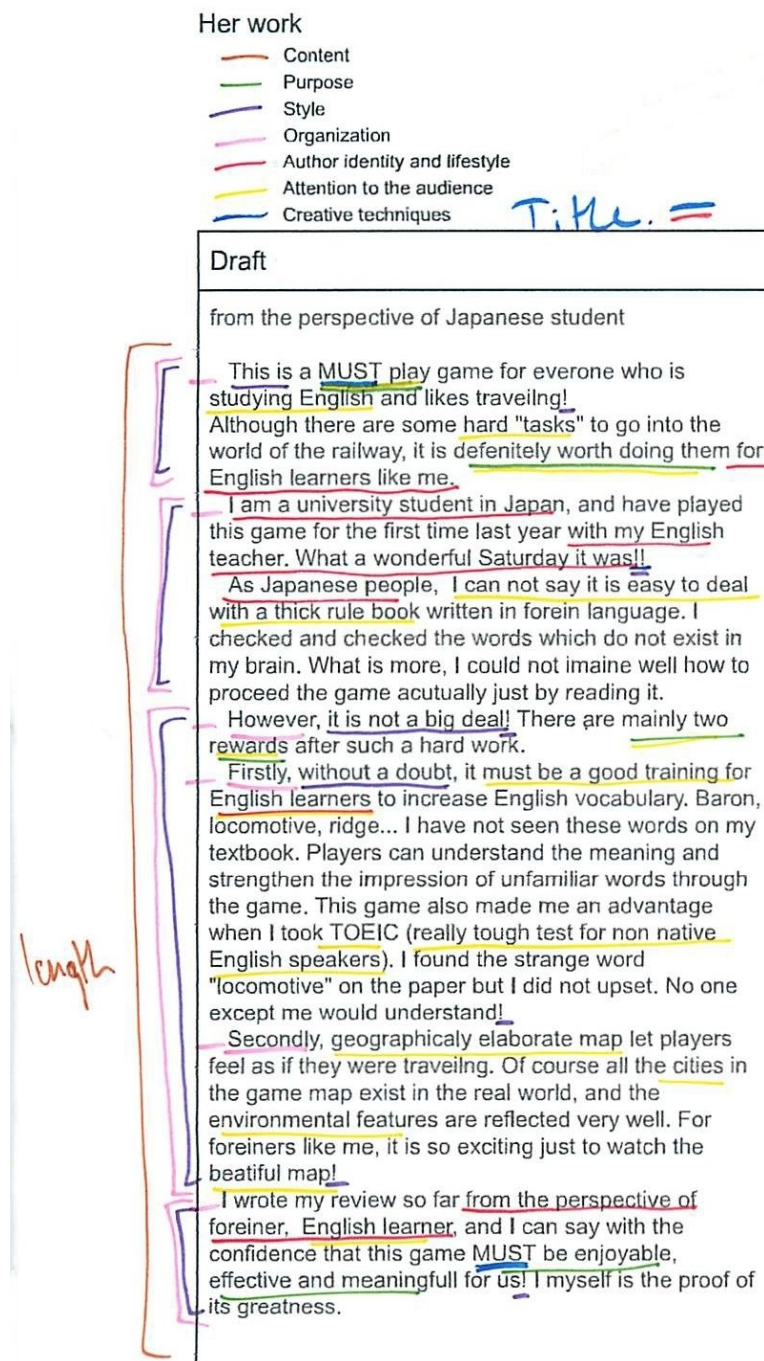 Her work
Content
Purpose
Style
Organization
Author identity and lifestyle
Attention to the audience
Creative techniques
Title.
Draft
from the perspective of Japanese student
This is a MUST play game for everone who is
studying English and likes traveilng!
Although there are some hard "tasks" to go into the
world of the railway, it is defenitely worth doing them for
English learners like me.
I am a university student in Japan, and have played
this game for the first time last year with my English
teacher. What a wonderful Saturday it was!!
As Japanese people, I can not say it is easy to deal
with a thick rule book written in forein language. I
checked and checked the words which do not exist in
my brain. What is more, I could not imaine well how to
proceed the game acutually just by reading it.
However, it is not a big deal! There are mainly two
rewards after such a hard work.
Firstly, without a doubt, it must be a good training for
English learners to increase English vocabulary. Baron,
locomotive, ridge... I have not seen these words on my
textbook. Players can understand the meaning and
strengthen the impression of unfamiliar words through
the game. This game also made me an advantage
when I took TOEIC (really tough test for non native
English speakers). I found the strange word
"locomotive" on the paper but I did not upset. No one
except me would understand!
length
Secondly, geographicaly elaborate map let players
feel as if they were traveilng. Of course all the cities in
the game map exist in the real world, and the
environmental features are reflected very well. For
foreiners like me, it is so exciting just to watch the
beatiful map!
I wrote my review so far from the perspective of
foreiner, English learner, and I can say with the
confidence that this game MUST be enjoyable,
effective and meaningfull for us! I myself is the proof of
its greatness.